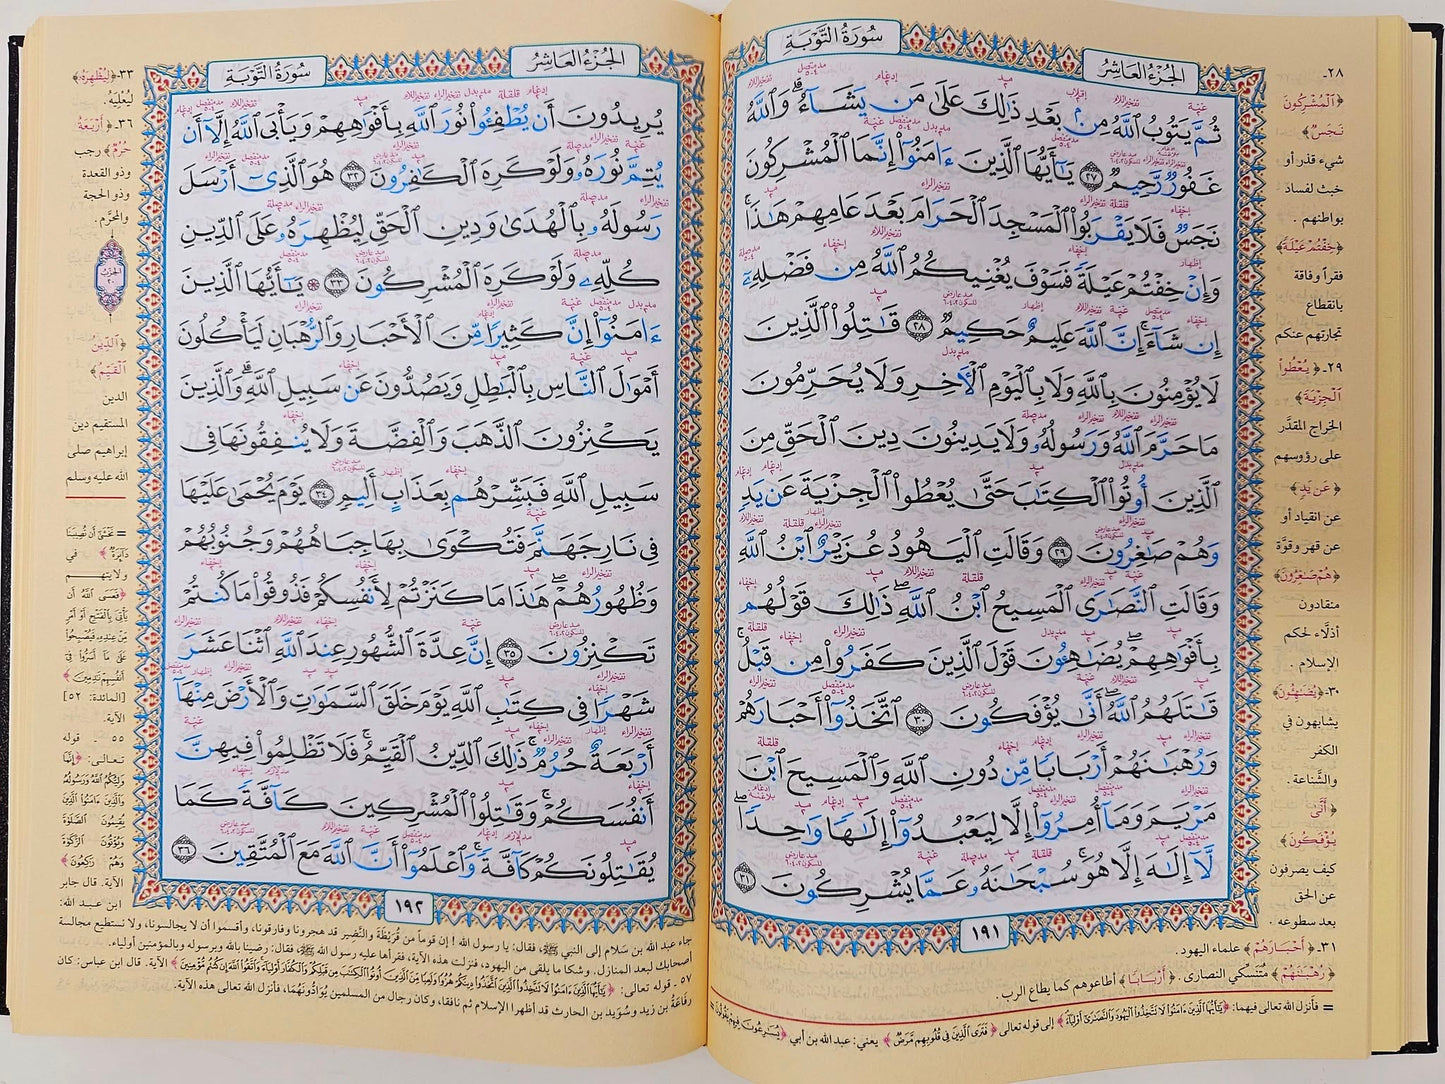 سُورَةُ التَّوْبَةِ
الجُزْءُ العَاشِرُ
ثُمَّ يَتُوبُ ٱللَّهُ مِنۢ بَعْدِ ذَٰلِكَ عَلَىٰ مَن يَشَآءُ ۗ وَٱللَّهُ
غَفُورٌ رَّحِيمٌ ٢٧ يَـٰٓأَيُّهَا ٱلَّذِينَ ءَامَنُوٓا۟ إِنَّمَا ٱلْمُشْرِكُونَ
نَجَسٌ فَلَا يَقْرَبُوا۟ ٱلْمَسْجِدَ ٱلْحَرَامَ بَعْدَ عَامِهِمْ هَـٰذَا ۚ
وَإِنْ خِفْتُمْ عَيْلَةً فَسَوْفَ يُغْنِيكُمُ ٱللَّهُ مِن فَضْلِهِۦٓ
إِن شَآءَ ۚ إِنَّ ٱللَّهَ عَلِيمٌ حَكِيمٌ ٢٨ قَـٰتِلُوا۟ ٱلَّذِينَ
لَا يُؤْمِنُونَ بِٱللَّهِ وَلَا بِٱلْيَوْمِ ٱلْـَٔاخِرِ وَلَا يُحَرِّمُونَ
مَا حَرَّمَ ٱللَّهُ وَرَسُولُهُۥ وَلَا يَدِينُونَ دِينَ ٱلْحَقِّ مِنَ
ٱلَّذِينَ أُوتُوا۟ ٱلْكِتَـٰبَ حَتَّىٰ يُعْطُوا۟ ٱلْجِزْيَةَ عَن يَدٍ
وَهُمْ صَـٰغِرُونَ ٢٩ وَقَالَتِ ٱلْيَهُودُ عُزَيْرٌ ٱبْنُ ٱللَّهِ
وَقَالَتِ ٱلنَّصَـٰرَى ٱلْمَسِيحُ ٱبْنُ ٱللَّهِ ۖ ذَٰلِكَ قَوْلُهُم
بِأَفْوَٰهِهِمْ ۖ يُضَـٰهِـُٔونَ قَوْلَ ٱلَّذِينَ كَفَرُوا۟ مِن قَبْلُ ۚ
قَـٰتَلَهُمُ ٱللَّهُ ۚ أَنَّىٰ يُؤْفَكُونَ ٣٠ ٱتَّخَذُوٓا۟ أَحْبَارَهُمْ
وَرُهْبَـٰنَهُمْ أَرْبَابًا مِّن دُونِ ٱللَّهِ وَٱلْمَسِيحَ ٱبْنَ
مَرْيَمَ وَمَآ أُمِرُوٓا۟ إِلَّا لِيَعْبُدُوٓا۟ إِلَـٰهًا وَٰحِدًا ۖ
لَّآ إِلَـٰهَ إِلَّا هُوَ ۚ سُبْحَـٰنَهُۥ عَمَّا يُشْرِكُونَ ٣١
١٩١
٢٨-
﴿ٱلْمُشْرِكُونَ
نَجَسٌ﴾
شيء قذر أو
خبث لفساد
بواطنهم .
﴿خِفْتُمْ عَيْلَةً﴾
فقراً وفاقة
بانقطاع
تجارتهم عنكم
٢٩- ﴿يُعْطُوا۟
ٱلْجِزْيَةَ﴾
الخراج المقدَّر
على رؤوسهم
﴿عَن يَدٍ﴾
عن انقياد أو
عن قهر وقوَّة
﴿هُمْ صَـٰغِرُونَ﴾
منقادون
أذلَّاء لحكم
الإسلام .
٣٠- ﴿يُضَـٰهِـُٔونَ﴾
يشابهون في
الكفر
والشَّناعة .
﴿أَنَّىٰ
يُؤْفَكُونَ﴾
كيف يصرفون
عن الحق
بعد سطوعه .
٣١- ﴿أَحْبَارَهُمْ﴾ علماء اليهود .
﴿رُهْبَـٰنَهُمْ﴾ مُتَنَسِّكي النصارى . ﴿أَرْبَابًا﴾ أطاعوهم كما يطاع الرب .
= فأنزل الله تعالى فيهما: ﴿يَـٰٓأَيُّهَا ٱلَّذِينَ ءَامَنُوا۟ لَا تَتَّخِذُوا۟ ٱلْيَهُودَ وَٱلنَّصَـٰرَىٰٓ أَوْلِيَآءَ﴾ إلى قوله تعالى ﴿فَتَرَى ٱلَّذِينَ فِى قُلُوبِهِم مَّرَضٌ﴾ يعني: عبد الله بن أبي ﴿يُسَـٰرِعُونَ فِيهِمْ يَقُولُونَ =
الجُزْءُ العَاشِرُ
سُورَةُ التَّوْبَةِ
يُرِيدُونَ أَن يُطْفِـُٔوا۟ نُورَ ٱللَّهِ بِأَفْوَٰهِهِمْ وَيَأْبَى ٱللَّهُ إِلَّآ أَن
يُتِمَّ نُورَهُۥ وَلَوْ كَرِهَ ٱلْكَـٰفِرُونَ ٣٢ هُوَ ٱلَّذِىٓ أَرْسَلَ
رَسُولَهُۥ بِٱلْهُدَىٰ وَدِينِ ٱلْحَقِّ لِيُظْهِرَهُۥ عَلَى ٱلدِّينِ
كُلِّهِۦ وَلَوْ كَرِهَ ٱلْمُشْرِكُونَ ٣٣ ۞ يَـٰٓأَيُّهَا ٱلَّذِينَ
ءَامَنُوٓا۟ إِنَّ كَثِيرًا مِّنَ ٱلْأَحْبَارِ وَٱلرُّهْبَانِ لَيَأْكُلُونَ
أَمْوَٰلَ ٱلنَّاسِ بِٱلْبَـٰطِلِ وَيَصُدُّونَ عَن سَبِيلِ ٱللَّهِ ۗ وَٱلَّذِينَ
يَكْنِزُونَ ٱلذَّهَبَ وَٱلْفِضَّةَ وَلَا يُنفِقُونَهَا فِى
سَبِيلِ ٱللَّهِ فَبَشِّرْهُم بِعَذَابٍ أَلِيمٍ ٣٤ يَوْمَ يُحْمَىٰ عَلَيْهَا
فِى نَارِ جَهَنَّمَ فَتُكْوَىٰ بِهَا جِبَاهُهُمْ وَجُنُوبُهُمْ
وَظُهُورُهُمْ ۖ هَـٰذَا مَا كَنَزْتُمْ لِأَنفُسِكُمْ فَذُوقُوا۟ مَا كُنتُمْ
تَكْنِزُونَ ٣٥ إِنَّ عِدَّةَ ٱلشُّهُورِ عِندَ ٱللَّهِ ٱثْنَا عَشَرَ
شَهْرًا فِى كِتَـٰبِ ٱللَّهِ يَوْمَ خَلَقَ ٱلسَّمَـٰوَٰتِ وَٱلْأَرْضَ مِنْهَآ
أَرْبَعَةٌ حُرُمٌ ۚ ذَٰلِكَ ٱلدِّينُ ٱلْقَيِّمُ ۚ فَلَا تَظْلِمُوا۟ فِيهِنَّ
أَنفُسَكُمْ ۚ وَقَـٰتِلُوا۟ ٱلْمُشْرِكِينَ كَآفَّةً كَمَا
يُقَـٰتِلُونَكُمْ كَآفَّةً ۚ وَٱعْلَمُوٓا۟ أَنَّ ٱللَّهَ مَعَ ٱلْمُتَّقِينَ ٣٦
١٩٢
٣٣- ﴿لِيُظْهِرَهُ﴾
ليُعْلِيَه .
٣٦- ﴿أَرْبَعَةٌ
حُرُمٌ﴾ رجب
وذو القعدة
وذو الحجة
والمحرَّم .
الحزب
٢٠
﴿ٱلدِّينُ
ٱلْقَيِّمُ﴾
الدين
المستقيم دين
إبراهيم صلى
الله عليه وسلم
= نَخْشَىٰٓ أَن تُصِيبَنَا
دَآئِرَةٌ﴾ في
ولايتهــم
﴿فَعَسَى ٱللَّهُ أَن
يَأْتِىَ بِٱلْفَتْحِ أَوْ أَمْرٍ
مِّنْ عِندِهِۦ فَيُصْبِحُوا۟
عَلَىٰ مَآ أَسَرُّوا۟ فِىٓ
أَنفُسِهِمْ نَـٰدِمِينَ﴾
[المائدة: ٥٢]
الآية.
٥٥ - قوله
تعـالـى: ﴿إِنَّمَا
وَلِيُّكُمُ ٱللَّهُ وَرَسُولُهُۥ
وَٱلَّذِينَ ءَامَنُوا۟ ٱلَّذِينَ
يُقِيمُونَ ٱلصَّلَوٰةَ
وَيُؤْتُونَ ٱلزَّكَوٰةَ
وَهُمْ رَٰكِعُونَ﴾
الآية. قال جابر
ابن عبد الله:
جاء عبد الله بن سَلام إلى النبي ﷺ، فقال: يا رسول الله! إن قوماً من قُرَيْظَة والنَّضير قد هجرونا وفارقونا، وأقسموا أن لا يجالسونا، ولا نستطيع مجالسة
أصحابك لبعد المنازل. وشكا ما يلقى من اليهود، فنزلت هذه الآية، فقرأها عليه رسول الله ﷺ، فقال: رضينا بالله وبرسوله وبالمؤمنين أولياء.
٥٧ - قوله تعالى: ﴿يَـٰٓأَيُّهَا ٱلَّذِينَ ءَامَنُوا۟ لَا تَتَّخِذُوا۟ ٱلَّذِينَ ٱتَّخَذُوا۟ دِينَكُمْ هُزُوًا وَلَعِبًا مِّنَ ٱلَّذِينَ أُوتُوا۟ ٱلْكِتَـٰبَ مِن قَبْلِكُمْ وَٱلْكُفَّارَ أَوْلِيَآءَ ۚ وَٱتَّقُوا۟ ٱللَّهَ إِن كُنتُم مُّؤْمِنِينَ﴾ الآية. قال ابن عباس: كان
رفاعَةُ بن زيد وسُوَيد بن الحارث قد أظهرا الإسلام ثم نافقا، وكان رجال من المسلمين يُوَادُّونَهُمَا، فأنزل الله تعالى هذه الآية.